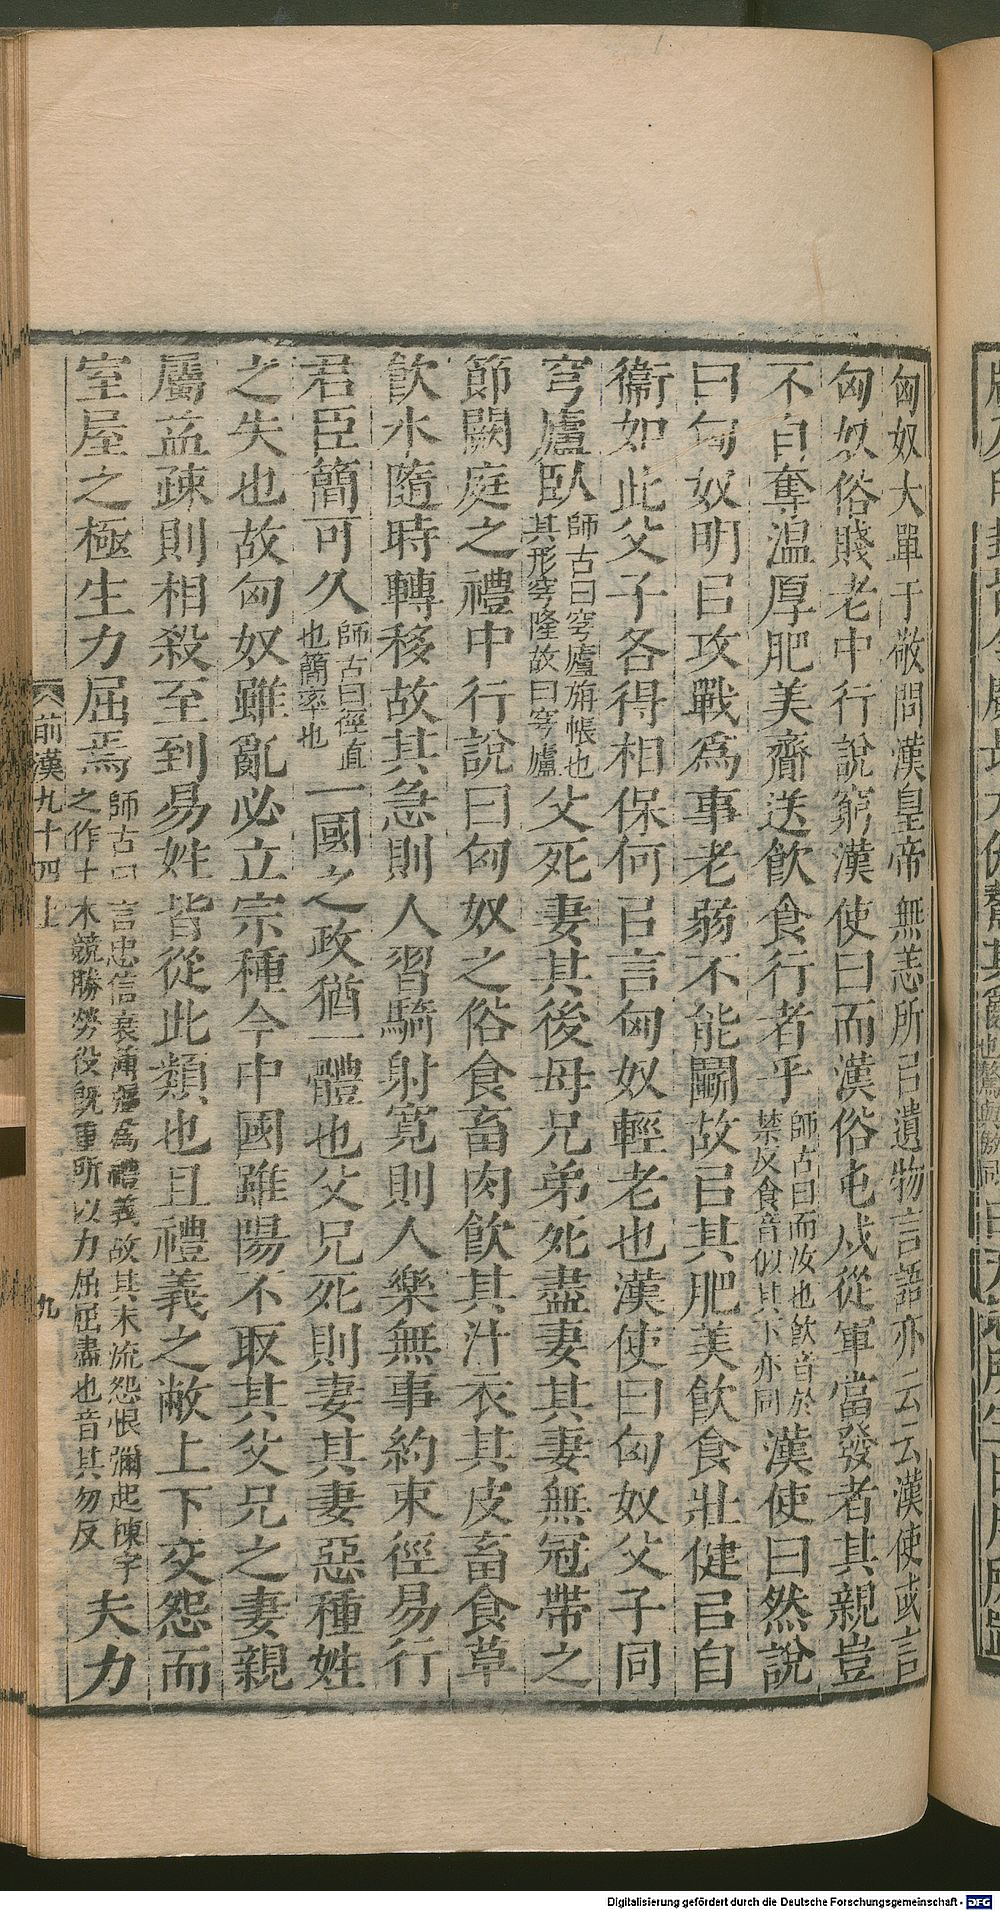 匈奴大單于敬問漢皇帝無恙所㠯遺物言語亦云云漢使或言
匈奴俗賤老中行說窮漢使曰而漢俗屯戍從軍當發者其親豈
不自奪温厚肥美齎送飲食行者乎師古曰而汝也飲音於禁反食音似其下亦同漢使曰然說
曰匈奴明㠯攻戰爲事老弱不能鬭故㠯其肥美飲食壯健㠯自
衞如此父子各得相保何㠯言匈奴輕老也漢使曰匈奴父子同
穹廬臥師古曰穹廬旃帳也其形穹隆故曰穹廬父死妻其後母兄弟死盡妻其妻無冠帶之
節闕庭之禮中行說曰匈奴之俗食畜肉飲其汁衣其皮畜食草
飲水隨時轉移故其急則人習騎射寬則人樂無事約束徑易行
君臣簡可久師古曰徑直也簡率也一國之政猶一體也父兄死則妻其妻惡種姓
之失也故匈奴雖亂必立宗種今中國雖陽不取其父兄之妻親
屬益疎則相殺至到易姓皆從此類也且禮義之敝上下交怨而
室屋之極生力屈焉師古曰言忠信衰薄强爲禮義故其末流怨恨彌起棟宇之作土木競勝勞役旣重所以力屈屈盡也音其勿反夫力
前漢九十四上
九
Digitalisierung gefördert durch die Deutsche Forschungsgemeinschaft - DFG